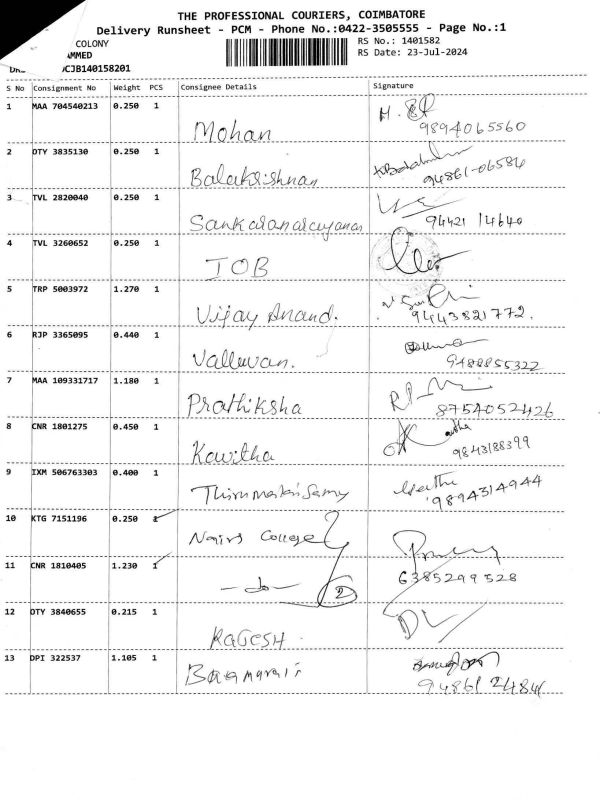 THE PROFESSIONAL COURIERS, COIMBATORE
Delivery Runsheet - PCM - Phone No.:0422-3505555 - Page No.:1
COLONY RS No.: 1401582
AMMED RS Date: 23-Jul-2024
CJB140158201
S No Consignment No Weight PCS Consignee Details Signature
1 MAA 704540213 0.250 1
Mohan 9894065560
2 OTY 3835130 0.250 1
Balakrishnan 94861-06584
3 TVL 2820040 0.250 1
Sankaranarayanan 94421 14640
4 TVL 3260652 0.250 1
IOB
5 TRP 5003972 1.270 1
Vijay Anand. 9443821772.
6 RJP 3365095 0.440 1
Valluvan. 9488855322
7 MAA 109331717 1.180 1
Prathiksha 8754052426
8 CNR 1801275 0.450 1
Kavitha 9843188399
9 IXM 506763303 0.400 1
Geetha
9894314944
10 KTG 7151196 0.250 1
Nairs College
11 CNR 1810405 1.230 1
-do- 2 6385299528
12 OTY 3840655 0.215 1
RAGESH.
13 DPI 322537 1.105 1
94861 24841